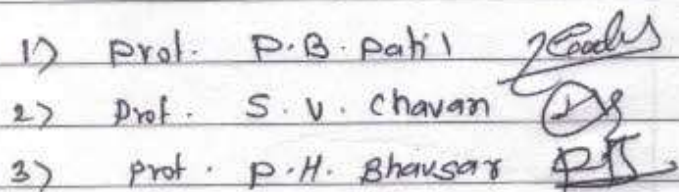 1) Prof. P.B. Patil
2) Prof. S.V. Chavan
3) Prof. P.H. Bhavsar